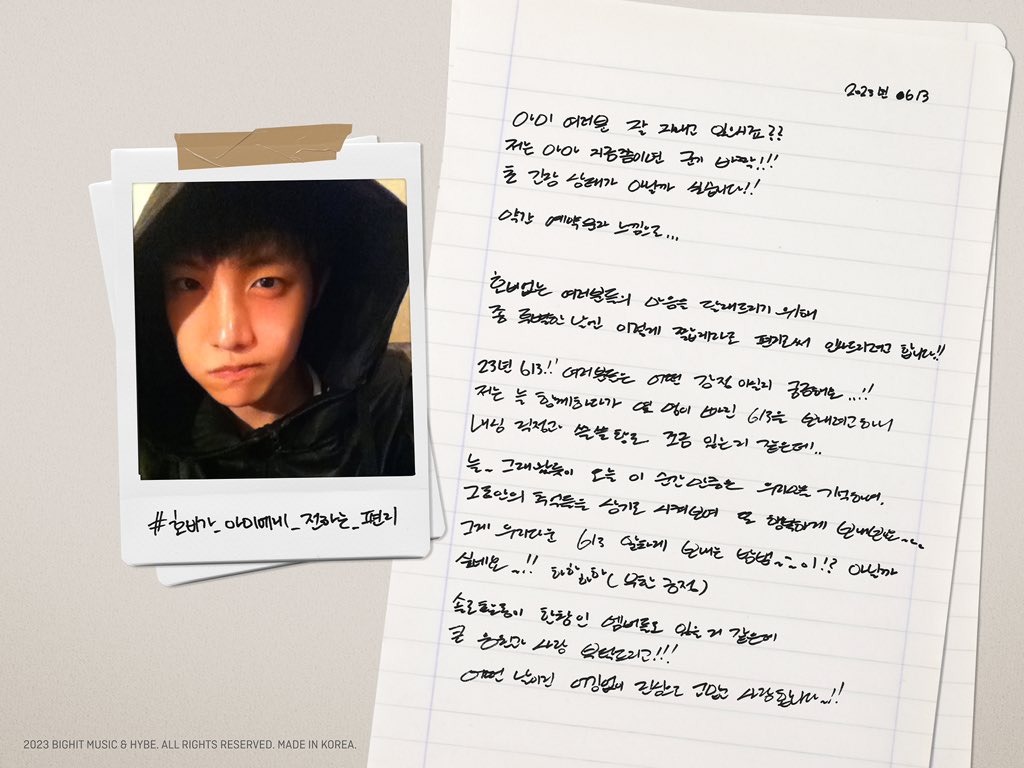 2023년 0613
아미 여러분 잘 지내고 있으시죠??
저는 아마 지금쯤이면 군기 바짝!!!
든 건강 상태가 아닐까 싶습니다!!
약간 예약문자 느낌으로...
호비없는 여러분들의 마음을 달래드리기 위해
좀 특별한 날엔 이렇게 짧게라도 편지로써 인사드리려고 합니다!!
23년 613!! 여러분들은 어떤 감정 이실지 궁금해요..!!
저는 늘 함께하다가 몇 명이 빠진 613을 보내려고하니
내심 걱정과 씁쓸함도 조금 있는거 같은데!..
늘~ 그래왔듯이 오늘 이 순간 만큼은 우리으로 기억하며,
그동안의 추억들을 상기로 시켜보며 또 행복하게 보내보아요~~
그게 우리다운 613 알차게 보내는 방법~~이!? 아닐까
싶네요~!! 하하하하(무한 긍정)
솔로활동이 한창인 멤버들도 있을 거 같은데
큰 응원과 사랑 부탁드리고!!!
어떤 날이건 어김없이 진심으로 고맙고 사랑합니다~!!
#호비가_아미에게_전하는_편지
2023 BIGHIT MUSIC & HYBE. ALL RIGHTS RESERVED. MADE IN KOREA.